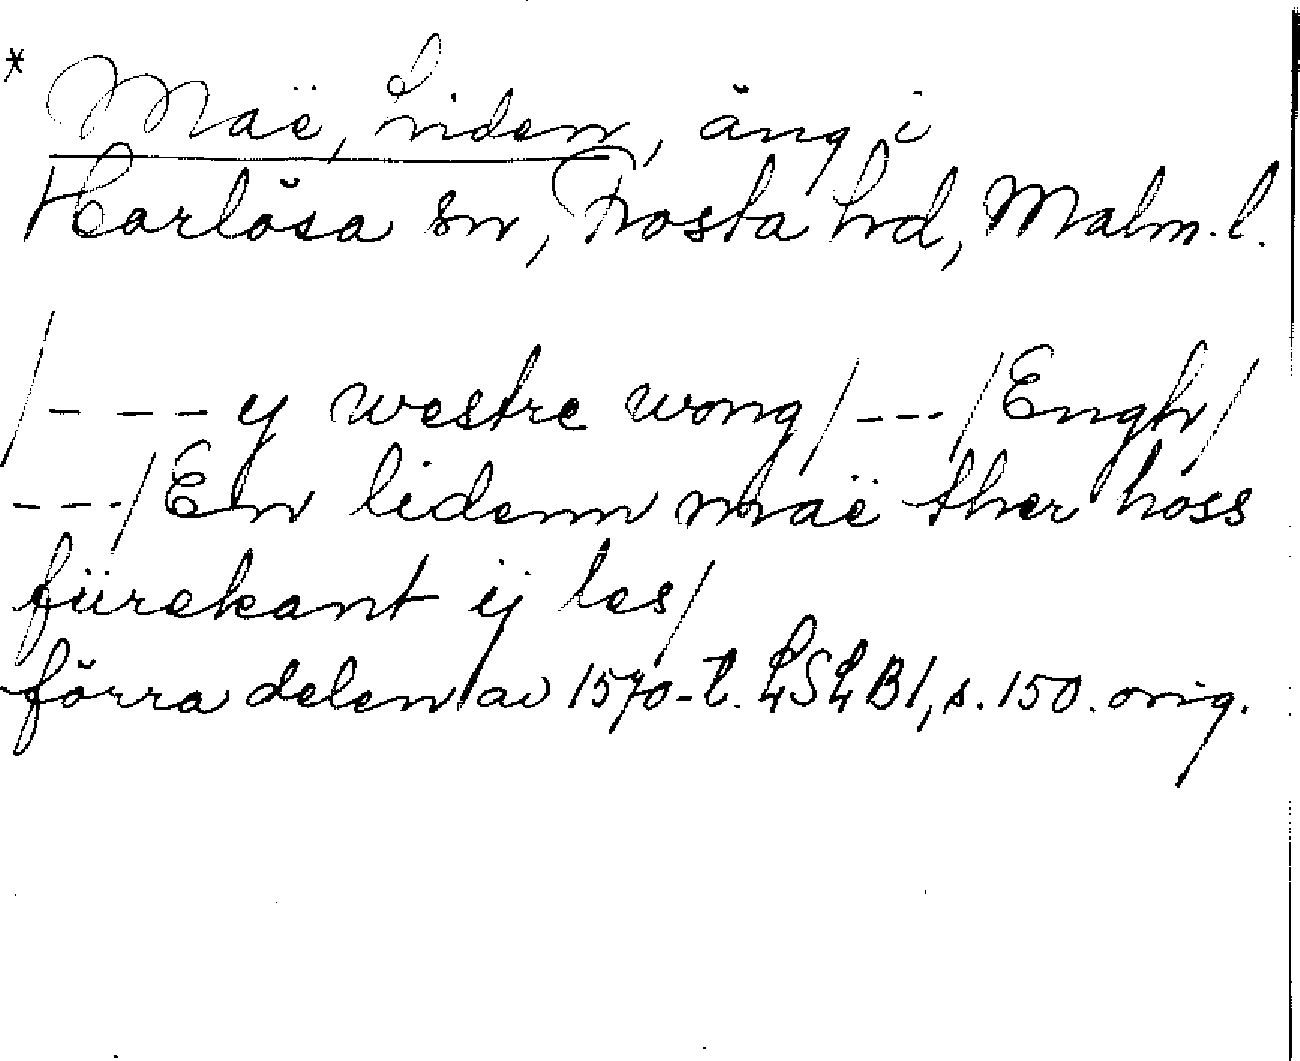 * Maë, Liden, äng i
Harlösa sn, Frosta hd, Malm. l.
/- - - y westre wong/---/Engh/
---/En lidenn maë ther hoss
fürekant ij les/
förra delen av 1570-t. LSLB1, s. 150. orig.